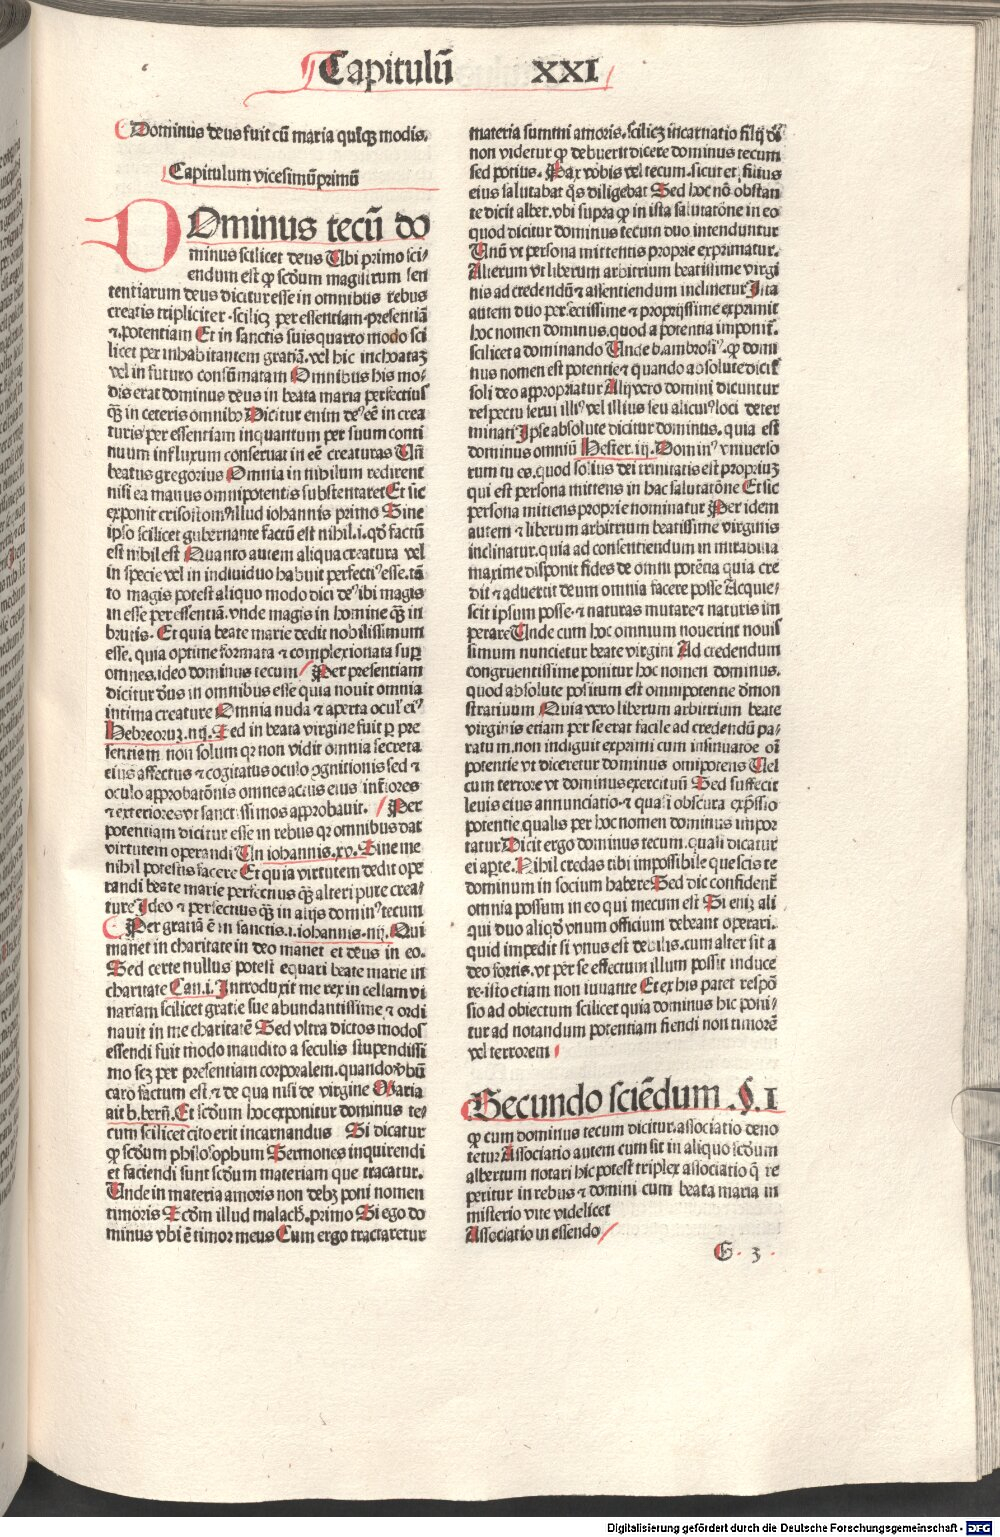 Capitulū XXI
Dominus deus fuit cū maria quīqꝫ modis.
Capitulum vicesimūprimū
DOminus tecū do
minus scilicet deus Ubi primo sci/
endum est ꝙ scḋum magistrum sen
tentiarum deus dicitur esse in omnibus rebus
creatis tripliciter. scilicꝫ per essentiam. presentiā
⁊ potentiam Et in sanctis suis quarto modo sci
licet per inhabitantem gratiā. vel hic inchoataꝫ
vel in futuro consūmatam Omnibus his mo/
dis erat dominus deus in beata maria perfectius
qꝫ in ceteris omnibꝰ Dicitur enim deꝰ eē in crea
turis per essentiam inquantum per suum conti
nuum influxum conseruat in eē creaturas Uñ
beatus gregorius Omnia in nihilum redirent
nisi ea manus omnipotentis substentaret Et sic
exponit crisostomꝰ illud iohannis primo Sine
ipso scilicet gubernante factū est nihil .i. qḋ factū
est nihil est Quanto autem aliqua creatura vel
in specie vel in indiuiduo habuit perfectiꝰ esse. tā
to magis potest aliquo modo dici deꝰ ibi magis
in esse per essentiā. vnde magis in homine qꝫ in
brutis. Et quia beate marie dedit nobilissimum
esse, quia optime formata ⁊ complexionata supꝑ
omnes. ideo dominus tecum / Per presentiam
dicitur dñs in omnibus esse quia nouit omnia
intima creature Omnia nuda ⁊ aperta oculꝭ eiꝰ
Hebreorꝫ .iiij. Sed in beata virgine fuit ꝑ pre
sentiam non solum qꝛ non vidit omnia secreta
eius affectus ⁊ cogitatus oculo cognitionis sed ⁊
oculo approbatōnis omnes actus eius interiores
⁊ exteriores vt sanctissimos approbauit. / Per
potentiam dicitur esse in rebus qꝛ omnibus dat
virtutem operandi Un iohannis .xv. Sine me
nihil potestis facere Et quia virtutem dedit ope
randi beate marie perfectius qꝫ alteri pure crea/
ture Ideo ⁊ perfectius qꝫ in alijs dominꝰ tecum
Per gratiā ē in sanctis .i. iohannis .iiij. Qui
manet in charitate in deo manet et deus in eo.
Sed certe nullus potest equari beate marie in
charitate Can .i. Introduxit me rex in cellam vi
nariam scilicet gratie sue abundantissime ⁊ ordi
nauit in me charitatē Sed vltra dictos modos
essendi fuit modo inaudito a seculis stupendissi
mo scꝫ per presentiam corporalem. quando vbū
caro factum est ⁊ de qua nisi de virgine Maria
ait b. berñ. Et scḋum hoc exponitur dominus te/
cum scilicet cito erit incarnandus Si dicatur
ꝙ scḋum philosophum Sermones inquirendi
et faciendi sunt scḋum materiam que tractatur.
Unde in materia amoris non debꝫ poni nomen
timoris Scḋm illud malach. primo Si ego do
minus vbi ē timor meus Cum ergo tractaretur
materia summi amoris. scilicꝫ incarnatio filij dī
non videtur ꝙ debuerit dicere dominus tecum
sed potius. Pax vobis vel tecum. sicut et filius
eius salutabat qͦs diligebat Sed hoc nō obstan
te dicit alber. vbi supra ꝙ in ista salutatōne in eo
quod dicitur dominus tecum duo intenduntur
Unū vt persona mittentis proprie exprimatur.
Alterum vt liberum arbitrium beatissime virgi
nis ad credendū ⁊ assentiendum inclinetur Ista
autem duo perfectissime ⁊ proprijssime exprimit
hoc nomen dominus. quod a potentia imponit̄.
scilicet a dominando Unde b. ambrosiꝰ. ꝙ domi
nus nomen est potentie ⁊ quando absolute dicit̄
soli deo appropriatur Alij vero domini dicuntur
respectu serui illiꝰ vel illius seu alicuiꝰ loci deter
minati Ipse absolute dicitur dominus. quia est
dominus omniū Hester .iij. Dominꝰ vniuerso
rum tu es. quod solius dei trinitatis est propriuꝫ
qui est persona mittens in hac salutatōne Et sic
persona mittens proprie nominatur Per idem
autem ⁊ liberum arbitrium beatissime virginis
inclinatur. quia ad consentiendum in mirabilia
maxime disponit fides de omnipotētia quia cre
dit ⁊ aduertit deum omnia facere posse Acquie/
scit ipsum posse. ⁊ naturas mutare ⁊ naturis im
perare Unde cum hoc omnium nouerint nouis
simum nuncietur beate virgini Ad credendum
congruentissime ponitur hoc nomen dominus.
quod absolute positum est omnipotentie dēmon
stratiuum Quia vero liberum arbitrium beate
virginis etiam per se erat facile ad credendū pa/
ratum. non indiguit exprimi cum insinuatōe oī
potentie vt diceretur dominus omnipotens Uel
cum terrore vt dominus exercituū Sed suffecit
leuis eius annunciatio. ⁊ quasi obscura expssio
potentie qualis per hoc nomen dominus impor
tatur Dicit ergo dominus tecum. quasi dicatur
ei apte. Nihil credas tibi impossibile que scis te
dominum in socium habere Sed dic confident̄
omnia possum in eo qui mecum est Si eniꝫ ali
qui duo aliqḋ vnum officium debeant operari.
quid impedit si vnus est debilis. cum alter sit a
deo fortis. vt per se effectum illum possit induce
re. isto etiam non iuuante Et ex his patet respō
sio ad obiectum scilicet quia dominus hic poni/
tur ad notandum potentiam fiendi non timorē
vel terrorem
Secundo sciēdum .§. I
ꝙ cum dominus tecum dicitur. associatio deno
tetur Associatio autem cum sit in aliquo scḋum
albertum notari hic potest triplex associatio q̄ re
peritur in rebus ⁊ domini cum beata maria in
misterio vite videlicet
Associatio in essendo /
G . 3 .
Digitalisierung gefördert durch die Deutsche Forschungsgemeinschaft - DFG